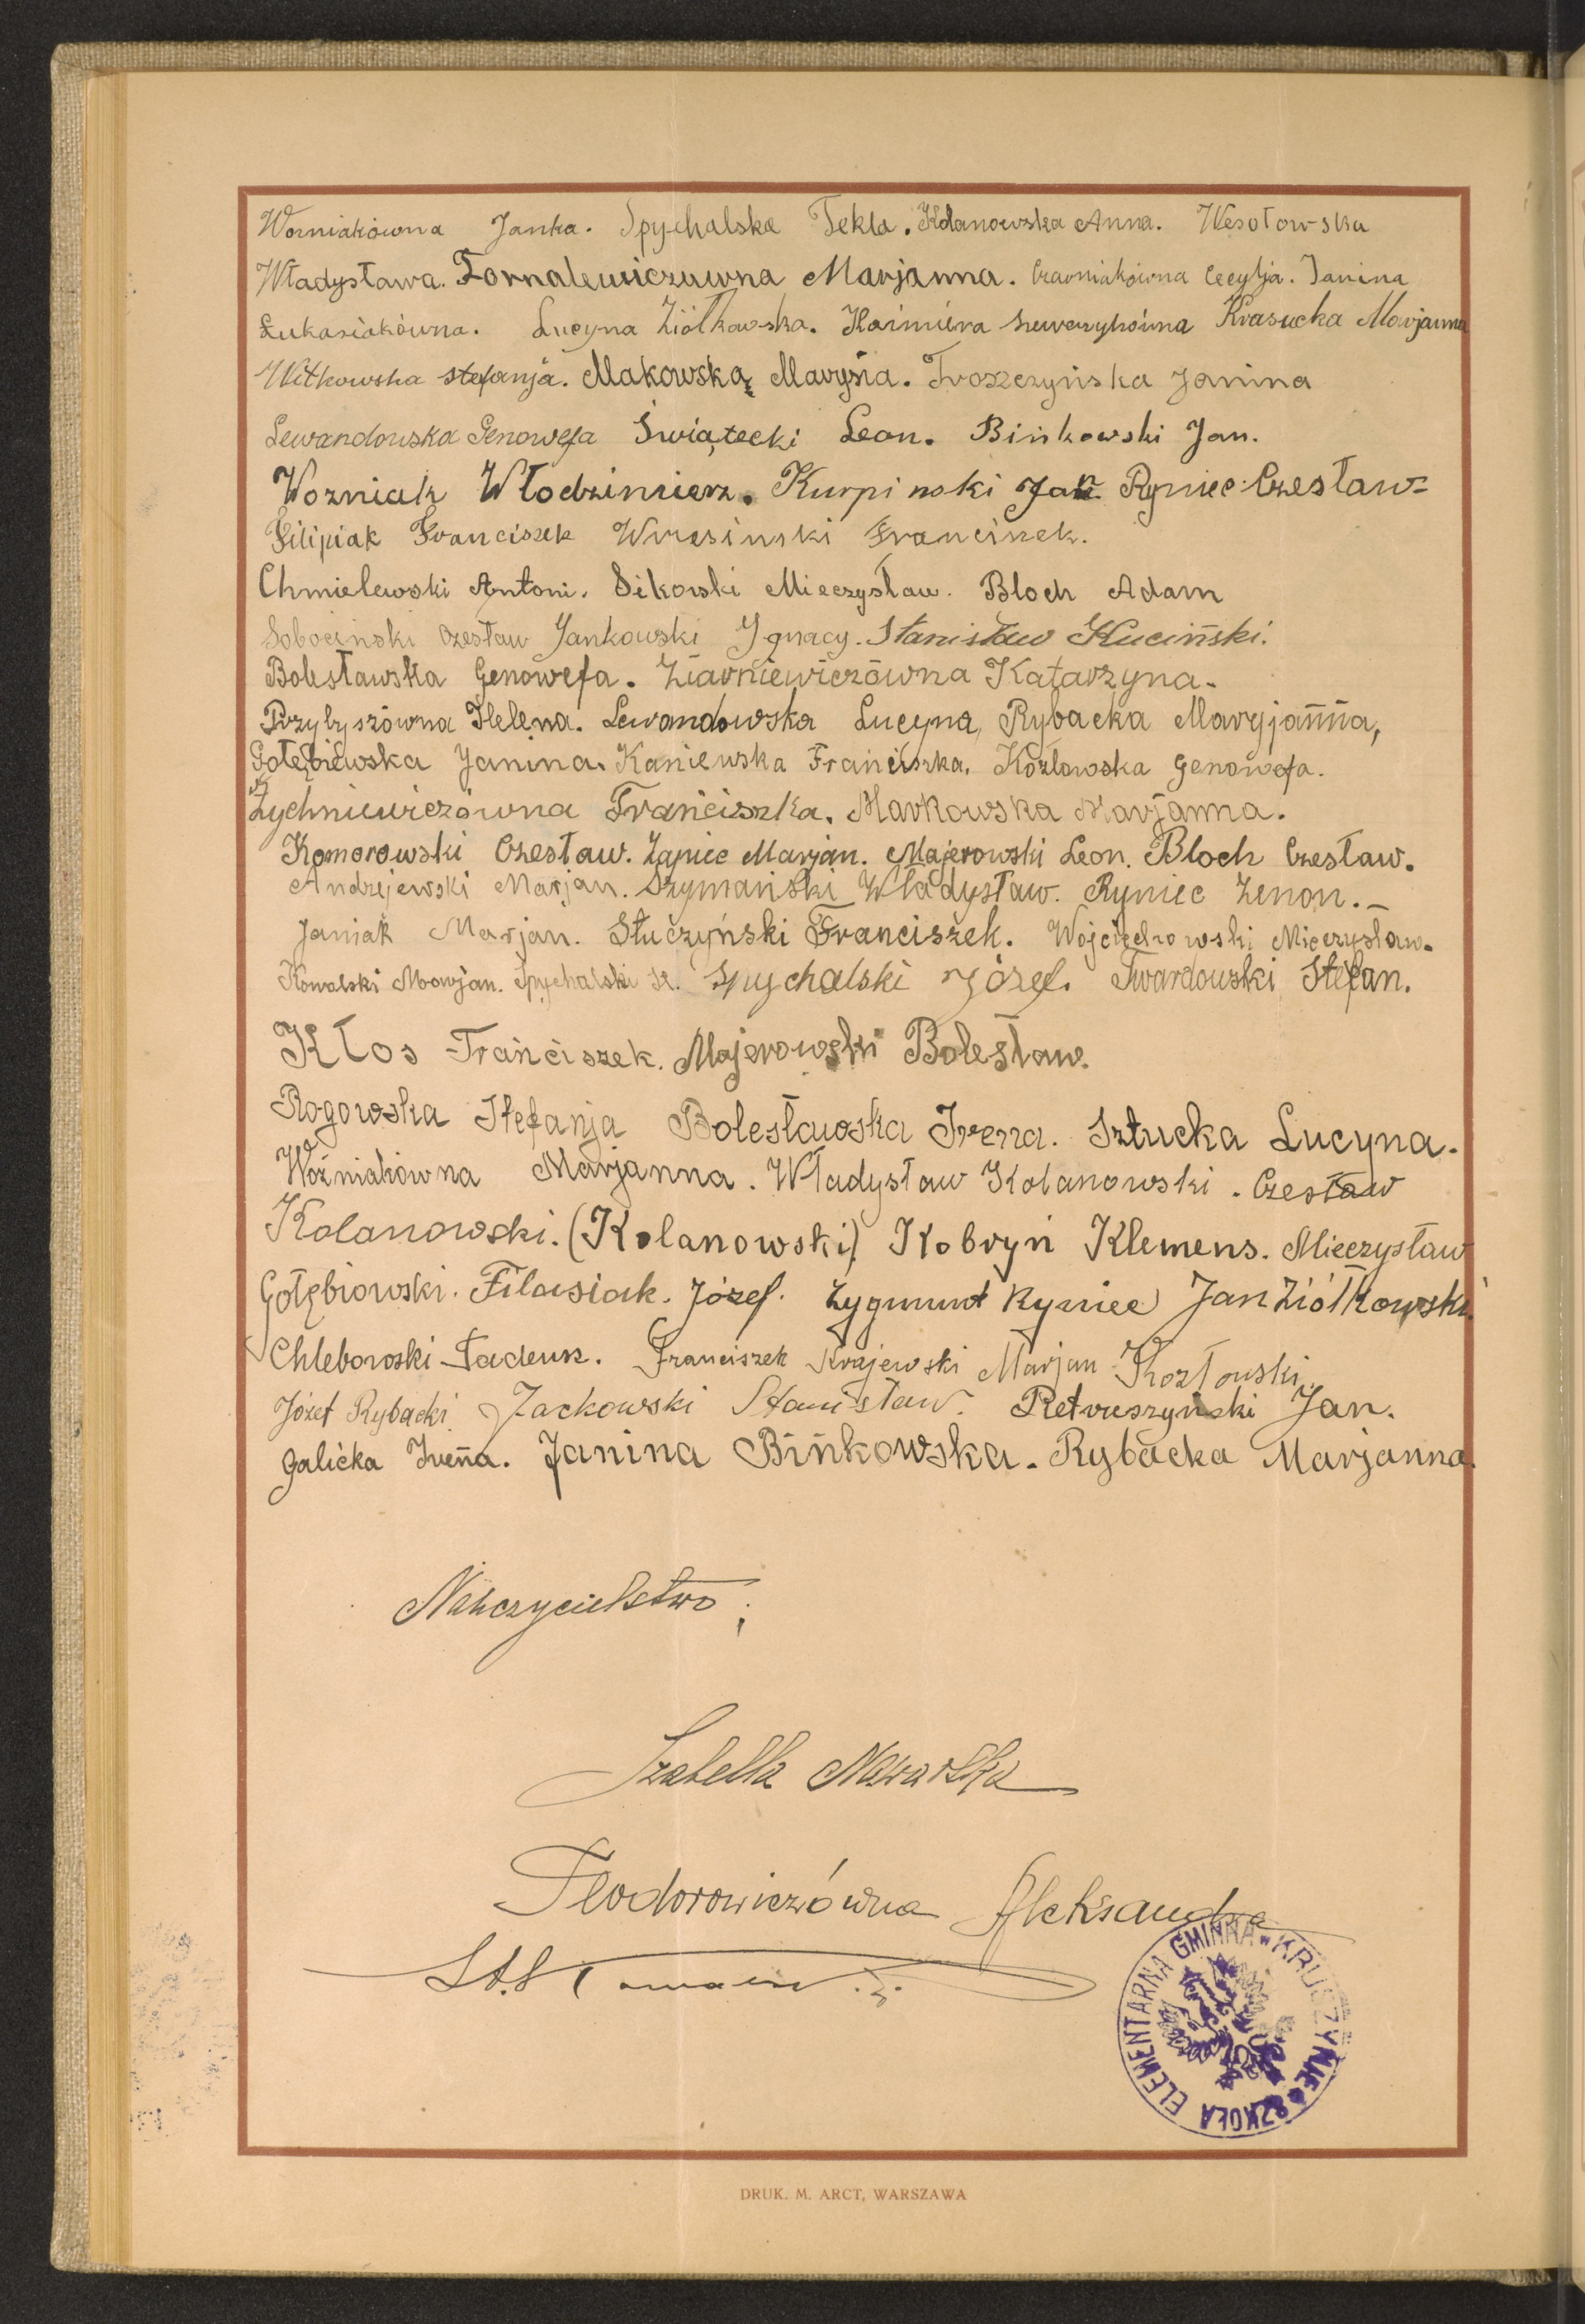 Worniakówna Janka. Spychalska Tekla. Kolanowska Anna. Wesołowska
Władysława. Fornalewiczuwna Marjanna. Czarniakówna Cecylja. Janina
Łukasiakówna. Lucyna Ziółkowska. Kaźmiera Krasucka Marjanna
Witkowska Stefanja. Makowska Marysia. Troszczyńska Janina
Lewandowska Genowefa Świątecki Leon. Bińkowski Jan.
Wozniak Włodzimierz. Kurpinski Jan Ryniec Czesław-
Filipiak Franciszek Wrzesinski Franciszek.
Chmielewski Antoni. Sikorski Mieczysław. Bloch Adam
Sobocinski Czesław Jankowski Ignacy. Stanisław Kuciński.
Bolesławska Genowefa. Ziarniewiczówna Katarzyna.
Przybyszówna Helena. Lewandowska Lucyna, Rybacka Maryjanna,
Gołębiewska Janina. Kaniewska Franciszka. Kozlowska Genowefa.
Zychniewiczówna Franciszka. Markowska Marjanna.
Komorowski Czesław. Zapiec Marjan. Majerowski Leon. Bloch Czesław.
Andrzejewski Marjan. Szymański Władysław. Ryniec Zenon.-
Janiak Marjan. Słuczyński Franciszek. Wojciechowski Mieczysław.
Kowalski Marjan. Spychalski St. Spychalski Józef. Twardowski Stefan.
Kłos Franciszek. Majerowski Bolesław.
Rogowska Stefanja Bolesławska Irena. Sztucka Lucyna.
Woźniakówna Marjanna. Władysław Kolanowski. Czesław
Kolanowski. (Kolanowski) Kobryń Klemens. Mieczysław
Gołębiowski. Filasiak. Józef. Zygmunt Ryniec Jan Ziółkowski.
Chlebowski Tadeusz. Franciszek Krajewski Marjan Kozłowski.
Józef Rybacki. Żackowski Stanisław. Pietruszyński Jan.
Galicka Irena. Janina Bińkowska. Rybacka Marjanna.
Nauczycielstwo;
Izabella Nawarska
Teodorowiczówna Aleksandra
SZKOŁA ELEMENTARNA GMINNA w KRUSZYNIE
DRUK. M. ARCT, WARSZAWA